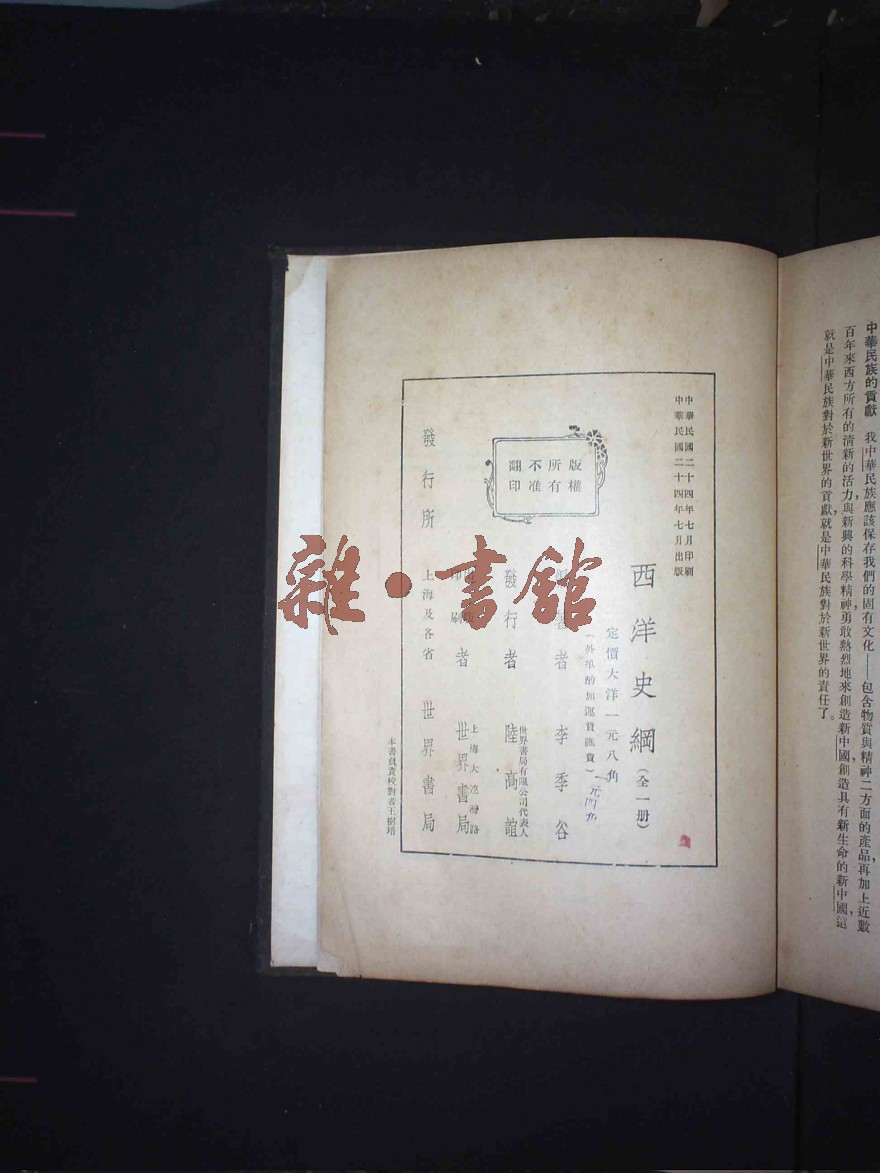 中華民族的貢獻　我中華民族應該保存我們的固有文化——包含物質與精神二方面的產品，再加上近數
百年來西方所有的清新的活力，與新興的科學精神，勇敢熱烈地來創造新中國，創造具有新生命的新中國，這
就是中華民族對於新世界的貢獻，就是中華民族對於新世界的責任了。
中華民國二十四年七月印刷
中華民國二十四年七月出版
西洋史綱（全一册）
定價大洋一元八角
（外埠酌加運費匯費）
著者 李季谷
世界書局有限公司代表人
發行者 陸高誼
上海大連灣路
印刷者 世界書局
發行所 上海及各省 世界書局
版權
所有
不准
翻印
本書負責校對者王樹培
雜·書館